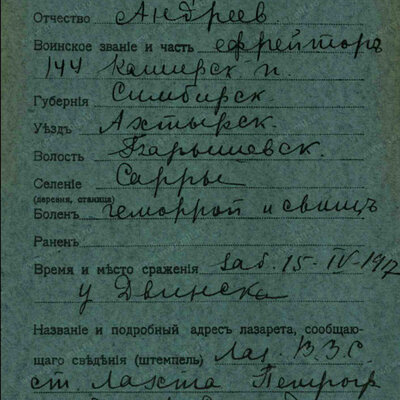 Отчество Андреев.
Воинское званіе и часть ефрейторъ
144 Каширск п.
Губернія Симбирск
Уѣздъ Ахтырск.
Волость Барышевск.
Селеніе Сарры
(деревня, станица)
Боленъ геморрой и свищъ
Раненъ
Время и мѣсто сраженія заб. 15-IV-1917
у Двинска
Названіе и подробный адресъ лазарета, сообщаю-
щаго свѣдѣнія (штемпель) Лаз. В.З.С.
ст. Лахта Петрогр